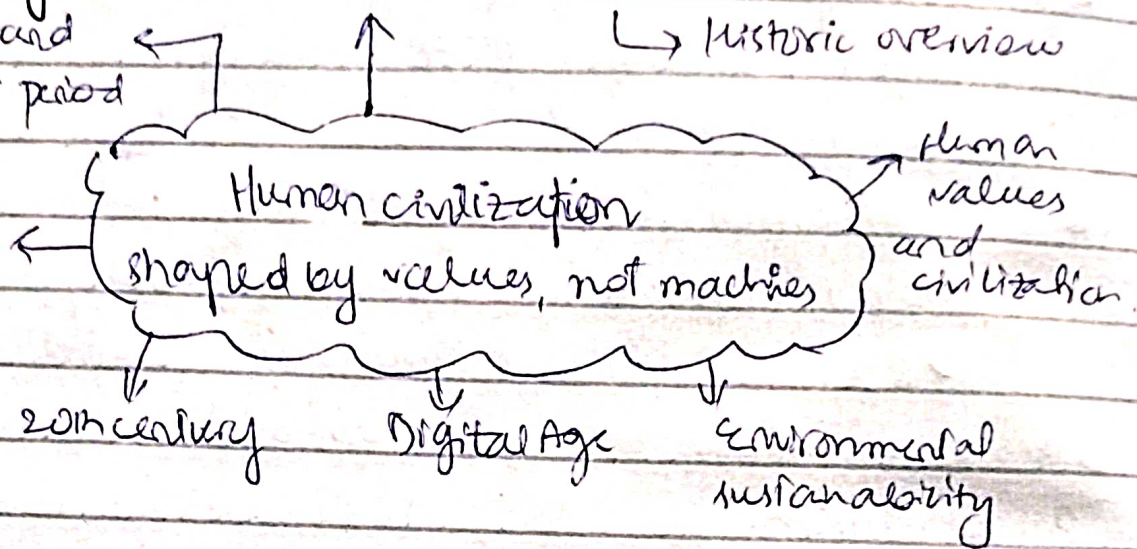 and
period
↳ Historic overview
Human civilization
shaped by values, not machies
Human
values
and
civilization
20th century
Digital Age
Environmental
sustanabizity